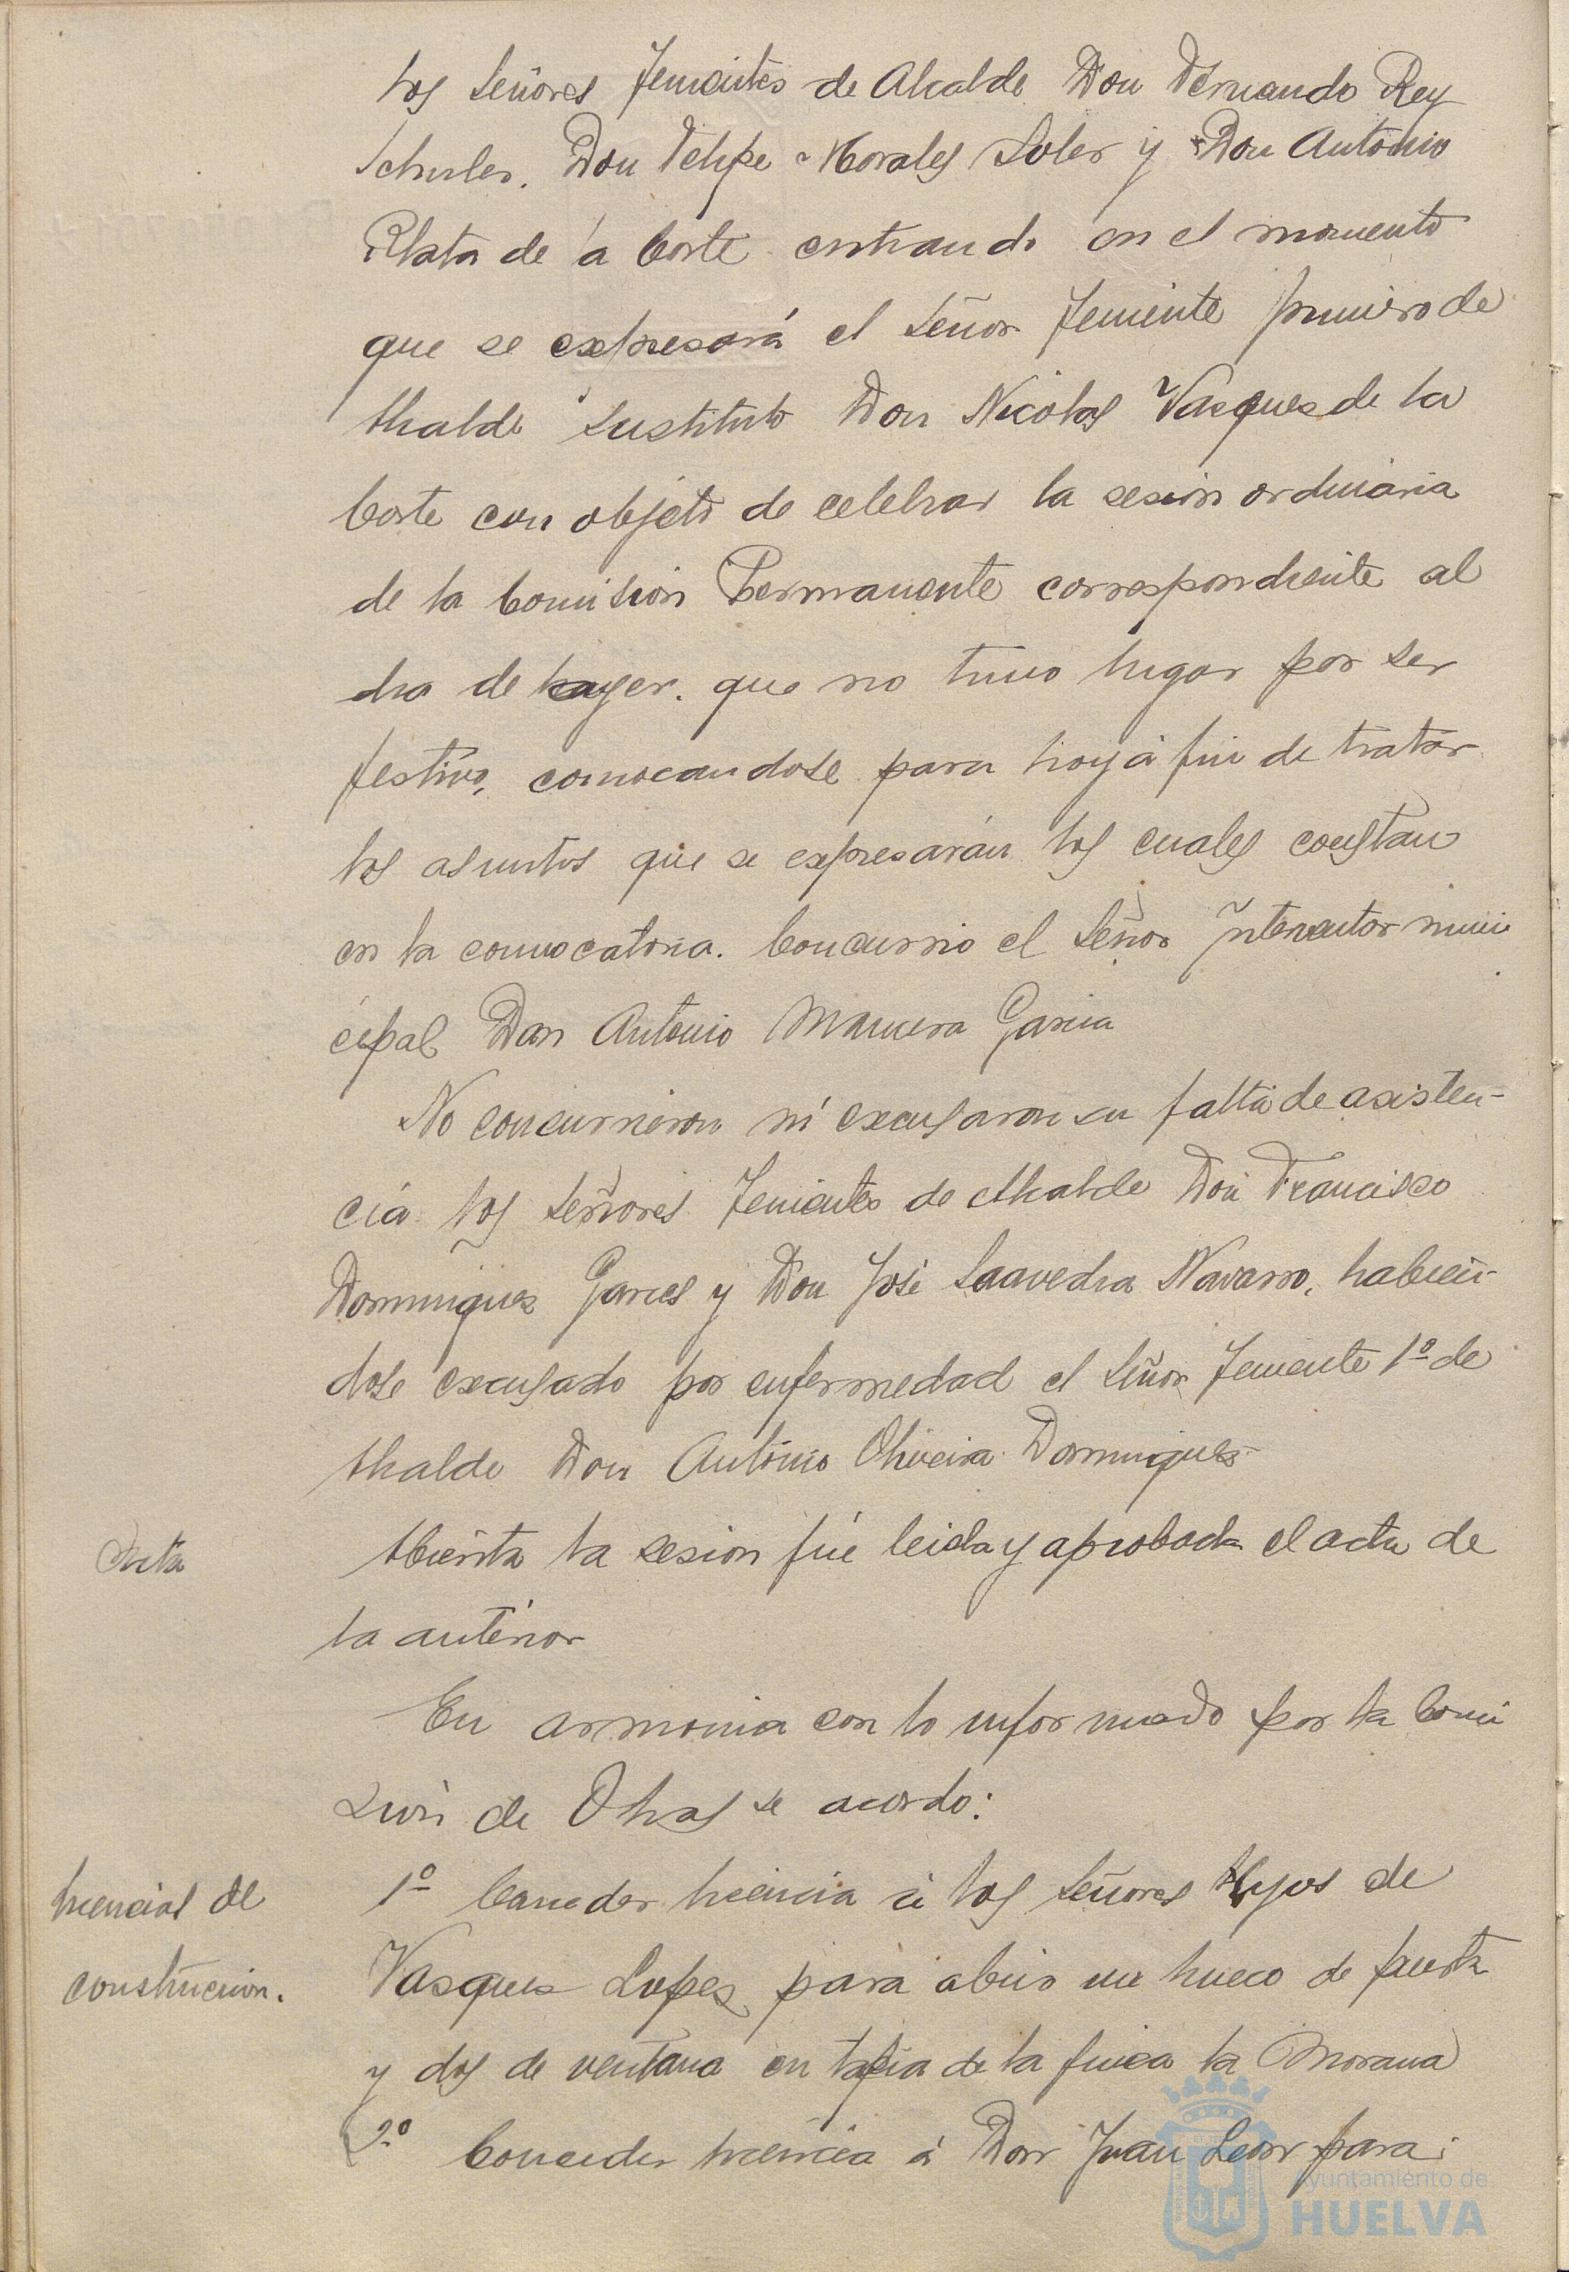 los Señores Tenientes de Alcalde Don Fernando Rey
Schuler. Don Felipe Morales Soler y Don Antonio
Plata de la Corte entrando en el momento
que se expresará el Señor Teniente primero de
Alcalde Sustituto Don Nicolas Vasques de la
Corte con objeto de celebrar la sesion ordinaria
de la Comision Permanente correspondiente al
dia de hayer. que no tuvo lugar por ser
festivo, convocandose para hoy á fin de tratar
los asuntos que se expresarán los cuales constan
en la convocatoria. Concurrio el Señor Interventor muni
cipal Don Antonio Mancera Garcia
No concurrieron ni excusaron su falta de asisten-
cia los Señores Tenientes de Alcalde Don Francisco
Dominguez Garces y Don José Saavedra Navarro, habien-
dose excusado por enfermedad el Señor Teniente 1º de
Alcalde Don Antonio Oliveira Dominguez
Acta
Abierta la sesion fué leida y aprobada el acta de
la anterior
En armonia con lo informado por la Comi
sion de Obras se acordo:
Licencias de
construccion.
1º Conceder licencia á los Señores Hijos de
Vasquez Lopez para abrir un hueco de puerta
y dos de ventana en tapia de la finca la Morana
2º Conceder licencia á Don Juan Leon para:
Ayuntamiento de
HUELVA